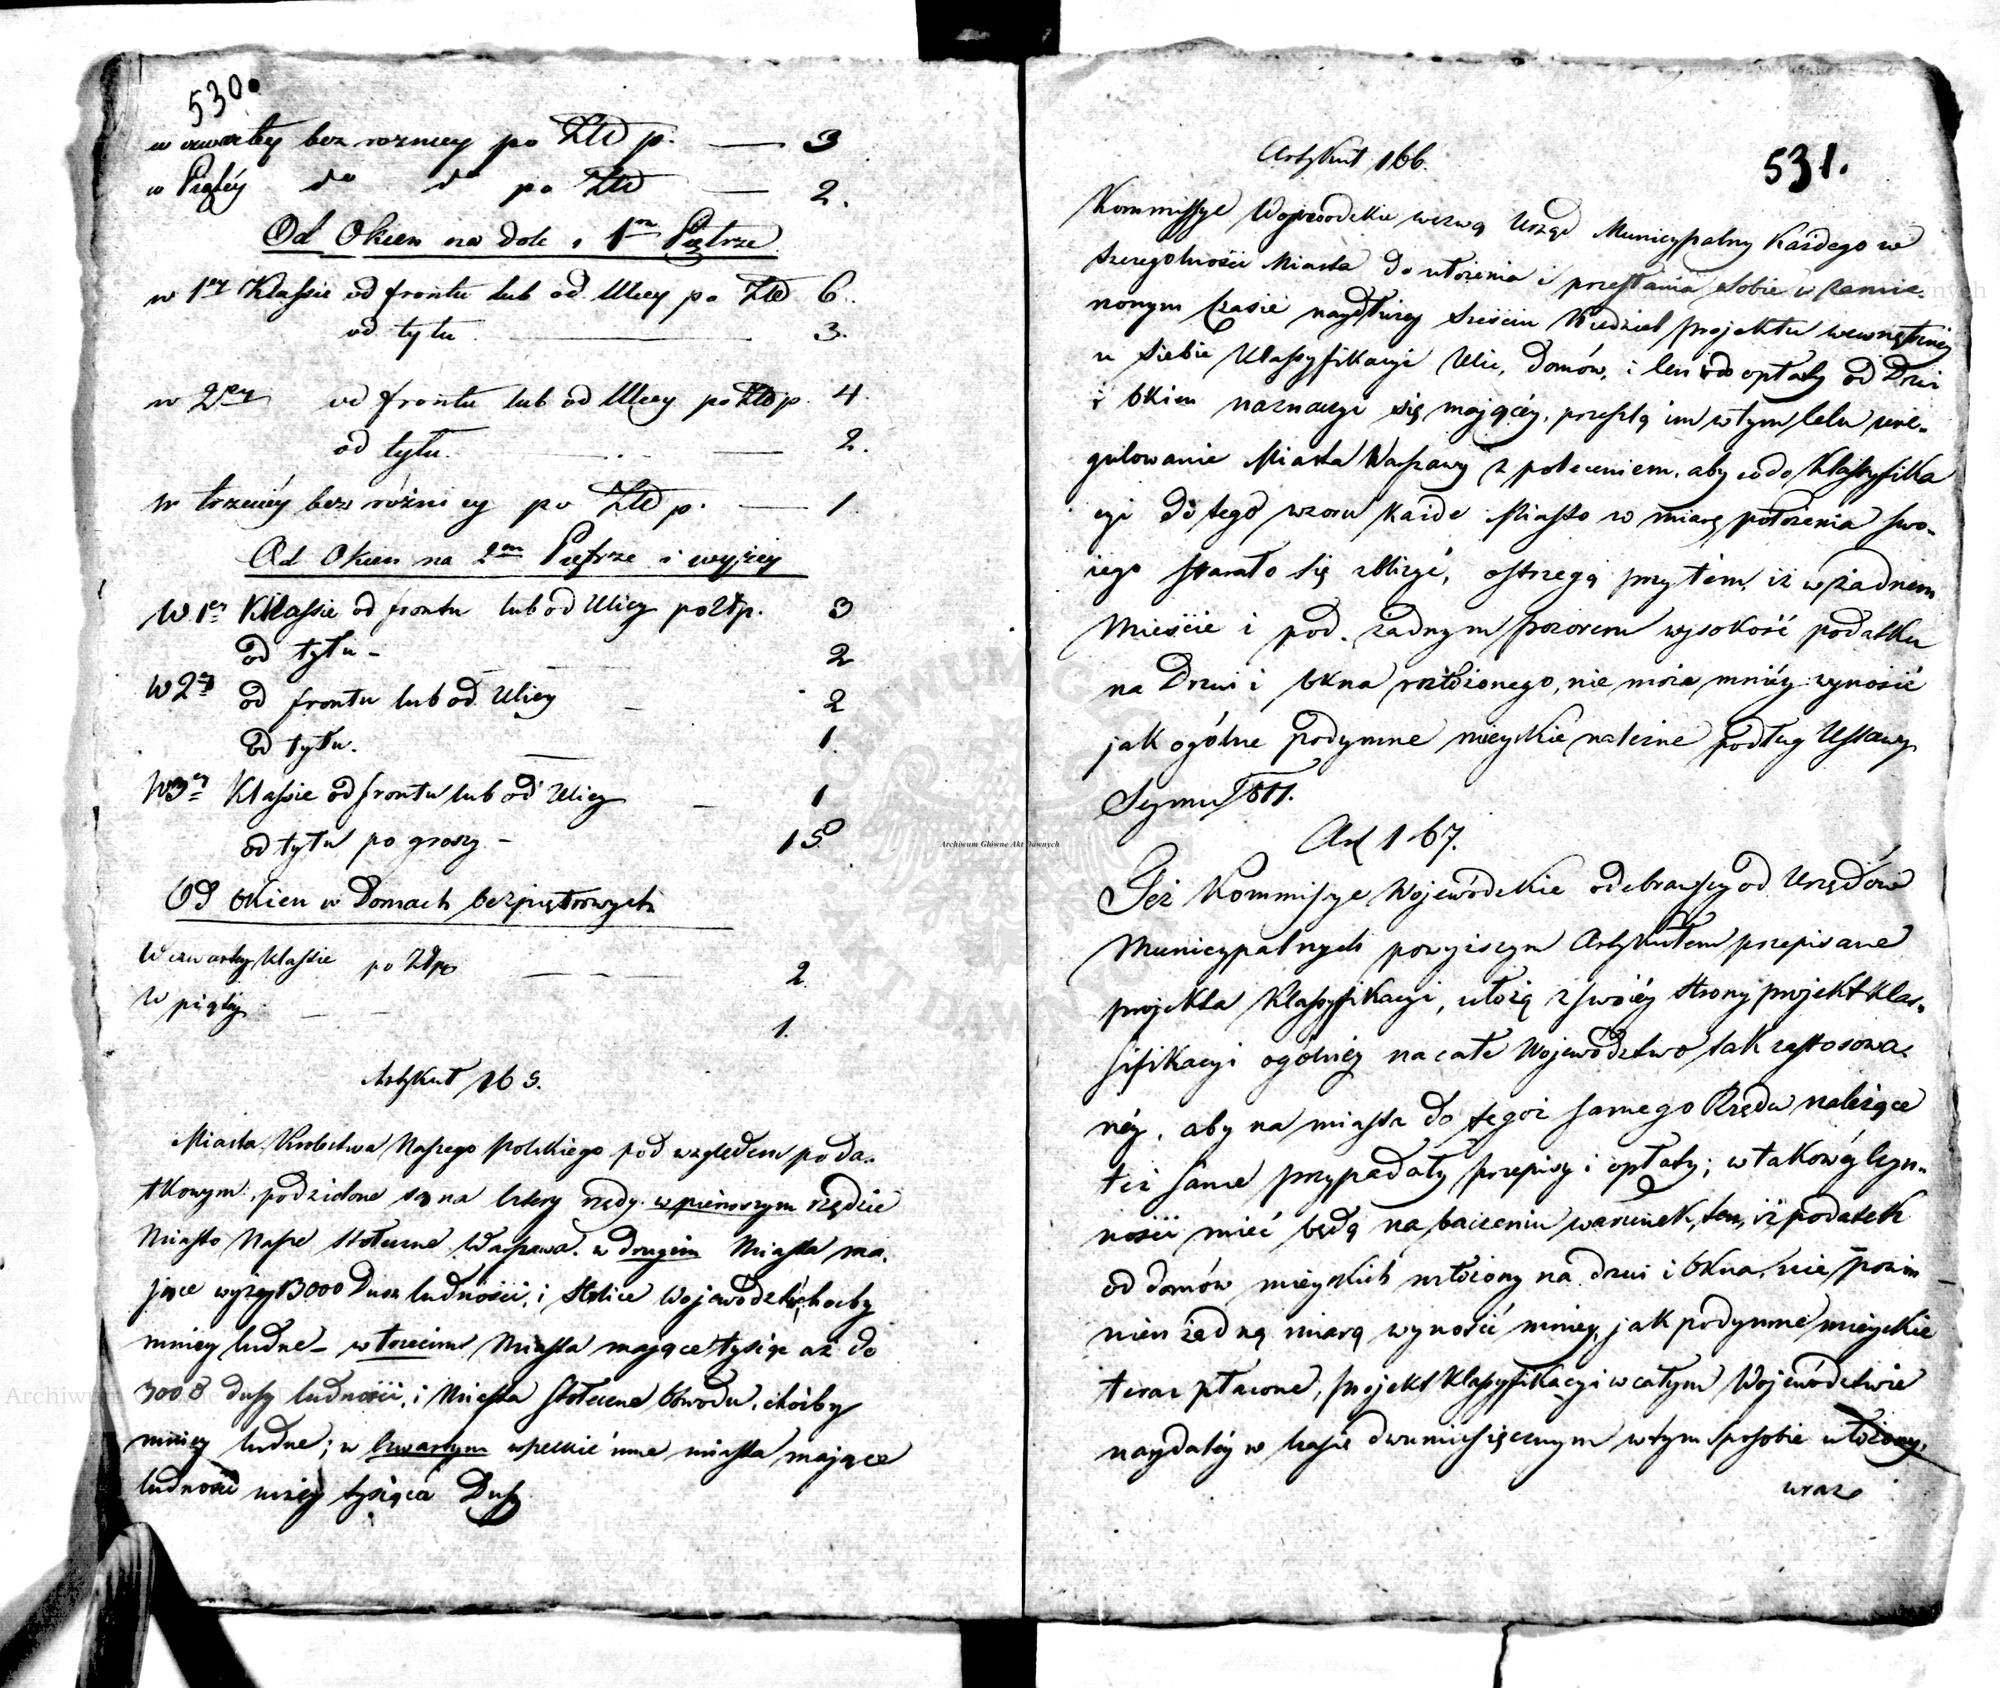 530.
w czwartey bez roznicy po Złt p. — 3
w Piątéy do do po Złt — 2.
Od Okien na dole i 1m Piętrze
w 1ey Klassie od frontu lub od Ulicy po Złt 6.
od tyłu — 3.
w 2ey od frontu lub od Ulicy po Złt p. 4.
od tyłu. — 2.
w trzeciéy bez różnicy po Złt p. — 1.
Od Okien na 2m Piętrze i wyżey
W 1ey Klassie od frontu lub od Ulicy po Złp. 3
od tyłu - 2
W 2ey od frontu lub od Ulicy — 2
od tyłu. — 1.
W 3ey Klassie od frontu lub od Ulicy — 1
od tyłu po groszy - 15
Od okien w Domach bezpiętrowych
W czwartey Klassie po Złp — 2.
W piątéy — 1.
Artykuł 165.
Miasta Krolestwa Naszego Polskiego pod względem poda-
tkowym, podzielone są na cztery rzędy. w pierwszym rzędzie
Miasto Nasze Stołeczne Warszawa. w drugim Miasta ma-
jące wyżey 3000 Dusz ludności, i Stolice Wojewódzkie, choćby
mniey ludne - w trzecim Miasta mające tysiąc aż do
3000 duszy ludności, i Miasta Stołeczne Obwodu, choćby
mniey ludne; w czwartym wszelkie inne miasta mające
ludność niżéy tysiąca Duszy
531.
Artykuł 166.
Kommissye Wojewodzkie wezwą Urząd Municypalny Każdego w
szczególności Miasta do ułożenia i przesłania Sobie w zamie-
nonym Czasie naydłużey Sześciu Niedziel projektu wewnętrznéy
u Siebie Klassyfikacyi Ulic, Domów, i Cen do opłaty od Drzwi
i Okien naznaczyć się mającéy, przeszlą im w tym Celu ure-
gulowanie Miasta Warszawy z poleceniem, aby co do Klassyfika
cyi do tego wzoru Każde Miasto w miarę położenia swo-
iego starało się zbliżyć, ostrzegą przytém, iż w żadnem
Mieście i pod żadnym pozorem wysokość podatku
na Drzwi i Okna rozłożonego, nie może mniéy wynosić
jak ogólne podymne mieyskie należne podług Ustawy
Seymu 1811.
Art 167.
Też Kommissye Wojewódzkie odebrawszy od Urzędów
Municypalnych powyższym Artykułem przepisane
projekta Klassyfikacyi, ułożą z swoiéy Strony projekt klas-
syfikacyi ogólnéy na całe Województwo tak zastosowa-
néy, aby na miasta do tegoż samego Rzędu należące
też same przypadały przepisy i opłaty; w takowéy Czyn-
ności mieć będą na baczeniu warunek, ten, iż podatek
od domów mieyskich rozłożony na drzwi i Okna, nie powi
nien żadną miarą wynosić mniey, jak podymne mieyskie
teraz płacone, projekt Klassyfikacyi w całym Województwie
naydaléy w Czasie dwumiesięcznym w tym Sposobie ułożony,
wraz
Archiwum Główne Akt Dawnych